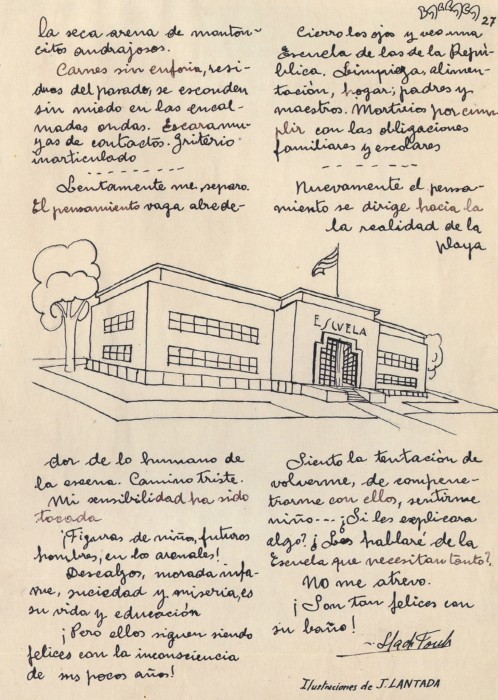 27
la seca arena de manton-
citos andrajosos.
Carnes sin euforia, resi-
duos del parado, se esconden
sin miedo en las encal-
madas ondas. Escaramu-
zas de contactos. Griterio
inarticulado
Lentamente me separo.
El pensamiento vaga alrede-
dor de lo humano de
la escena. Camino triste.
Mi sensibilidad ha sido
tocada
¡Figuras de niño, futuros
hombres, en los arenales!
Descalzos, morada infa-
me, suciedad y miseria, es
su vida y educación
¡Pero ellos siguen siendo
felices con la inconsciencia
de sus pocos años!
Cierro los ojos y veo una
Escuela de las de la Repú-
blica. Limpieza, alimen-
tación, hogar; padres y
maestros. Mortivios por cum
plir con las obligaciones
familiares y escolares
Nuevamente el pensa-
miento se dirige hacia la
la realidad de la
playa
ESCUELA
Siento la tentación de
volverme, de compene-
trarme con ellos, sentirme
niño--- ¿Si les explicara
algo? ¿Les hablaré de la
Escuela que necesitan tanto?
No me atrevo.
¡Son tan felices con
su baño!
Ilustraciones de J. LANTADA